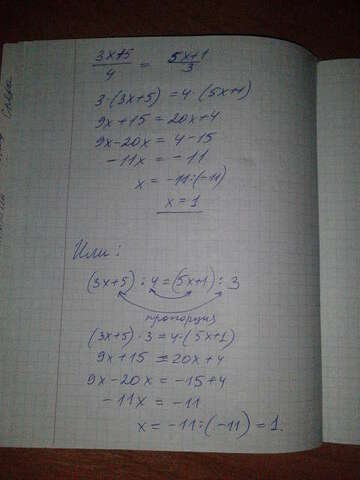 (3x+5)/4 = (5x+1)/3
3·(3x+5) = 4·(5x+1)
9x+15 = 20x+4
9x-20x = 4-15
-11x = -11
x = -11:(-11)
x = 1
Или:
(3x+5) : 4 = (5x+1) : 3
пропорция
(3x+5)·3 = 4·(5x+1)
9x+15 = 20x+4
9x-20x = -15+4
-11x = -11
x = -11:(-11) = 1.